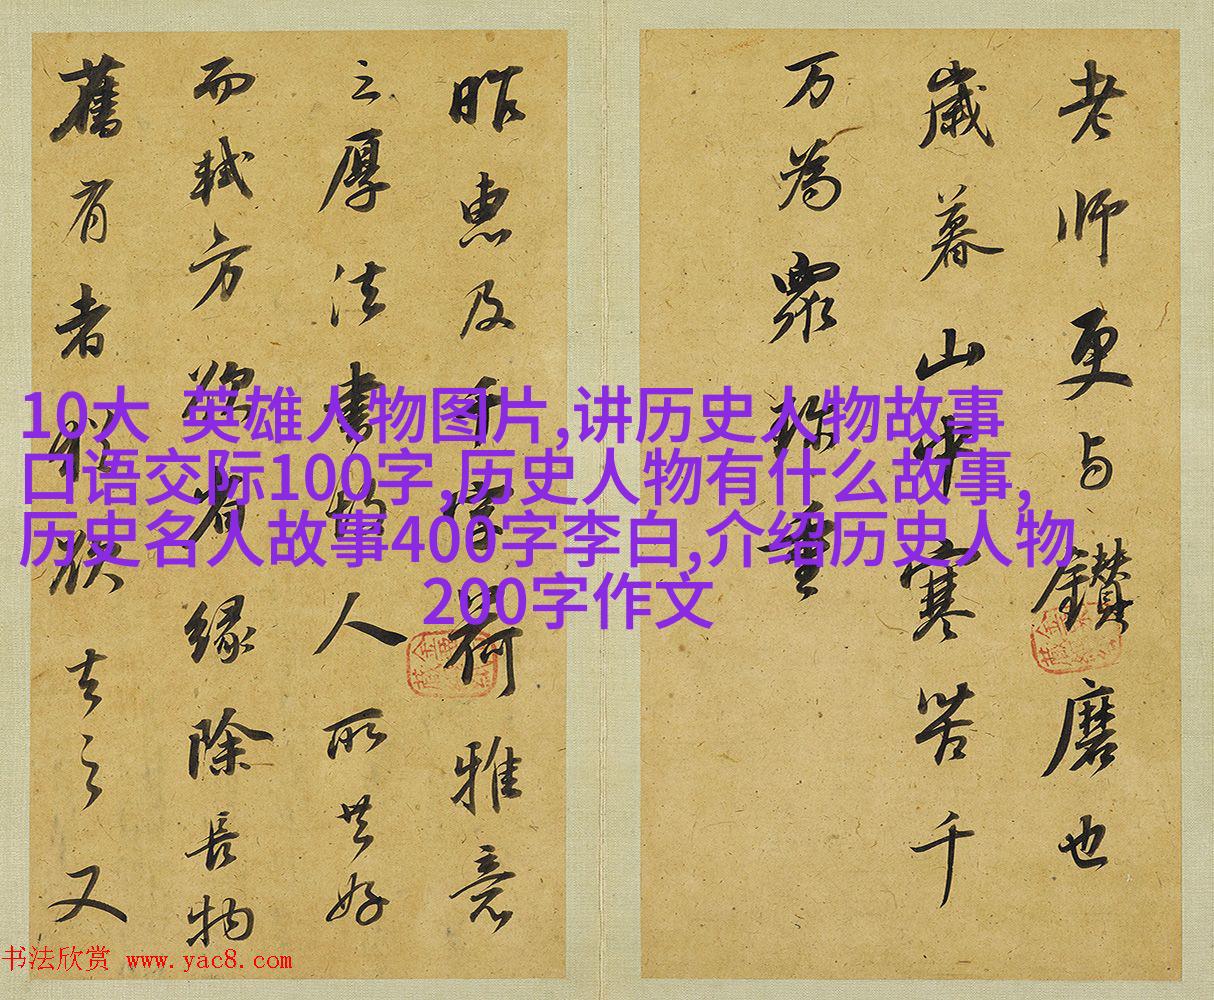 老師更与鑽磨也
歲暮山中寒苦千
万為眾珎重
昨惠及千字荷雅意
之厚法書固人所共好
而軾方欲省緣除長物
舊有者猶欲去之又
10大 英雄人物图片,讲历史人物故事
口语交际100字,历史人物有什么故事,
历史名人故事400字李白,介绍历史人物
200字作文
书法欣赏 www.yac8.com